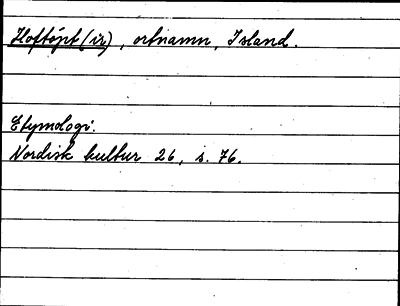 Hoftópt(ir), ortnamn, Island.
Etymologi.
Nordisk kultur 26, s. 76.